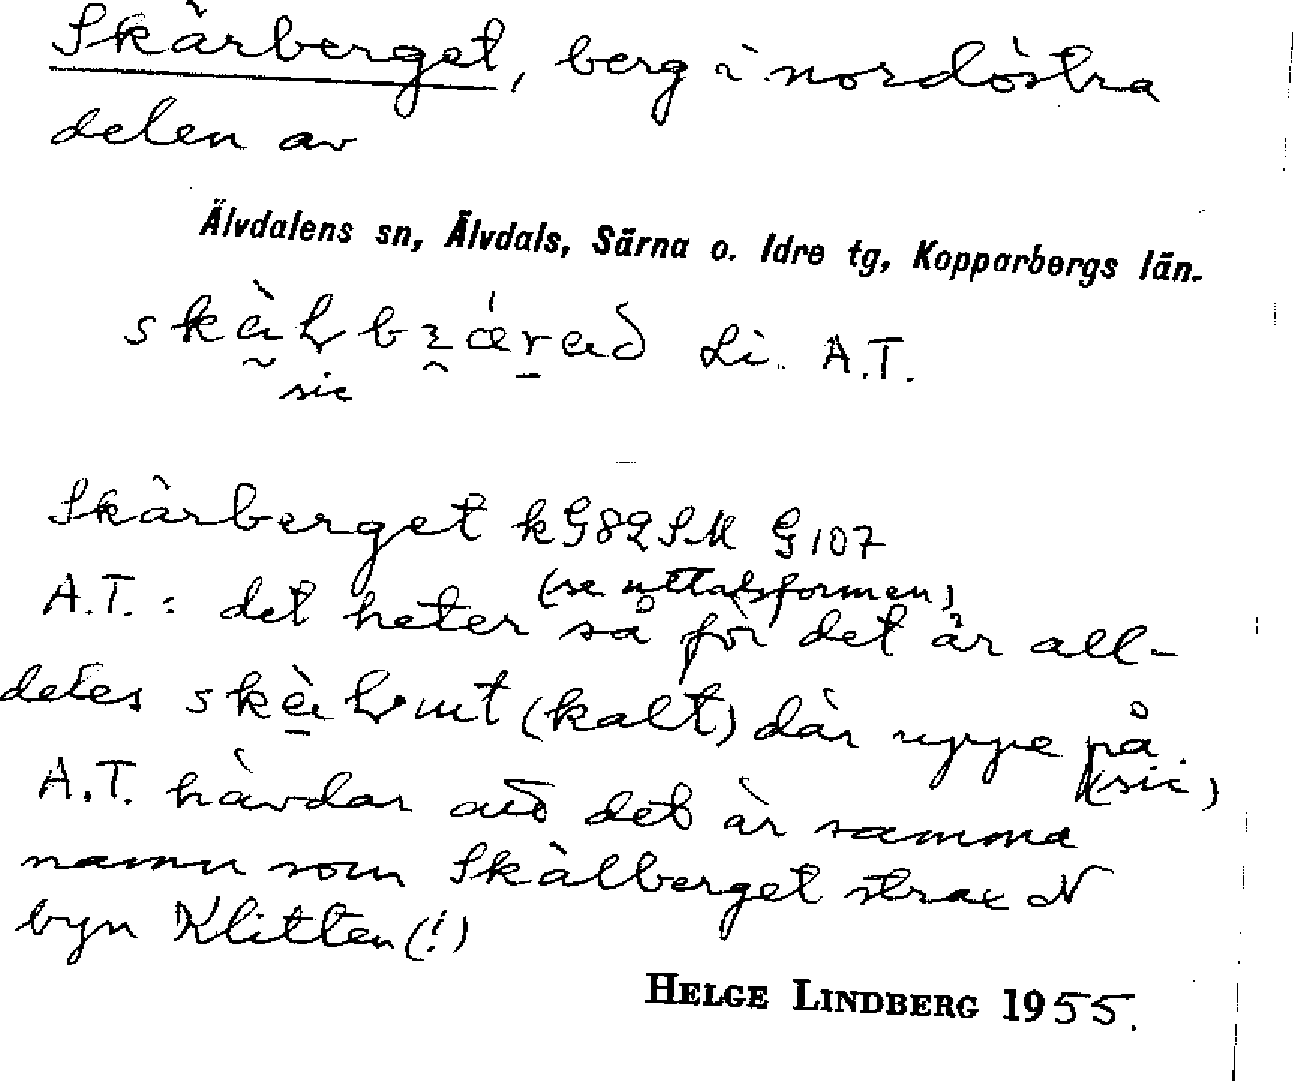 Skärberget, berg i nordöstra
delen av
Älvdalens sn, Älvdals, Särna o. Idre tg, Kopparbergs län.
Li. A.T.
sic
Skärberget kG82SM G107
(se uttalsformen)
A.T.: det heter så för det är all-
deles (kalt) där uppe på
(sic)
A.T. hävdar att det är samma
namn som Skälberget strax N
byn Klitten (!)
HELGE LINDBERG 1955.